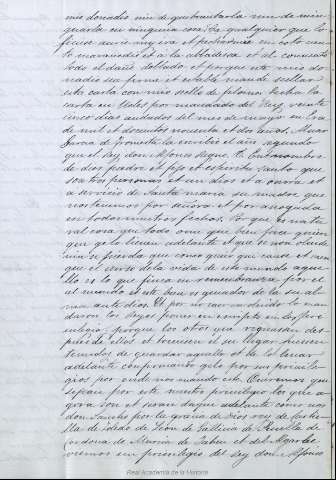 mis donadíos nin de quebrantarla nin de min
guarla en ninguna cosa. Ca qualquier que lo
ficiese avríe mi yra et pecharmíe en coto cien
to maravedís et a la abbadesa et al convento
todo el daño doblado et porque este mio do
nadío sea firme et estable mandé seellar
esta carta con mio seello de plomo. Fecha la
carta en Uclés por mandado del Rey, veinte
cinco días andados del mes de mayo en Era
de mil et docientos noventa et dos años. Alvar
García de Fromesta la escribió el año segundo
que el Rey don Alfonso regnó. En el nombre
de Dios padre et fijo et espíritu santo que
son tres personas et un Dios et a onra et
a servicio de Santa María su madre que
nos tenemos por señora et por abogada
en todos nuestros fechos. Porque es natu
ral cosa que todo ome que bien face quiere
que ge lo lieven adelante et que se non olvide
nin se pierda que como quier que canse et men
gue el curso de la vida de este mundo aque
llo es lo que finca en remembranza por él
al mundo et este bien es guiador de la su al
ma ante Dios. Et por no caer en olvido lo man
daron los Reyes poner en escripto en los pre
vilegios porque los otros que regnasen des
pués de ellos et toviesen el su lugar fuesen
tenudos de guardar aquello et de lo levar
adelante confirmándogelo por sus privile
gios por ende nos mando esto Queremos que
sepan por este nuestro privilegio los que a
gora son et serán daquí adelante como nos
don Sancho por la gracia de Dios rey de Casti
lla de Toledo de León de Gallicia de Sevilla de
Córdova de Murcia de Jahen et del Algarbe
viemos un previlegio del Rey don Alfonso
Real Academia de la Historia